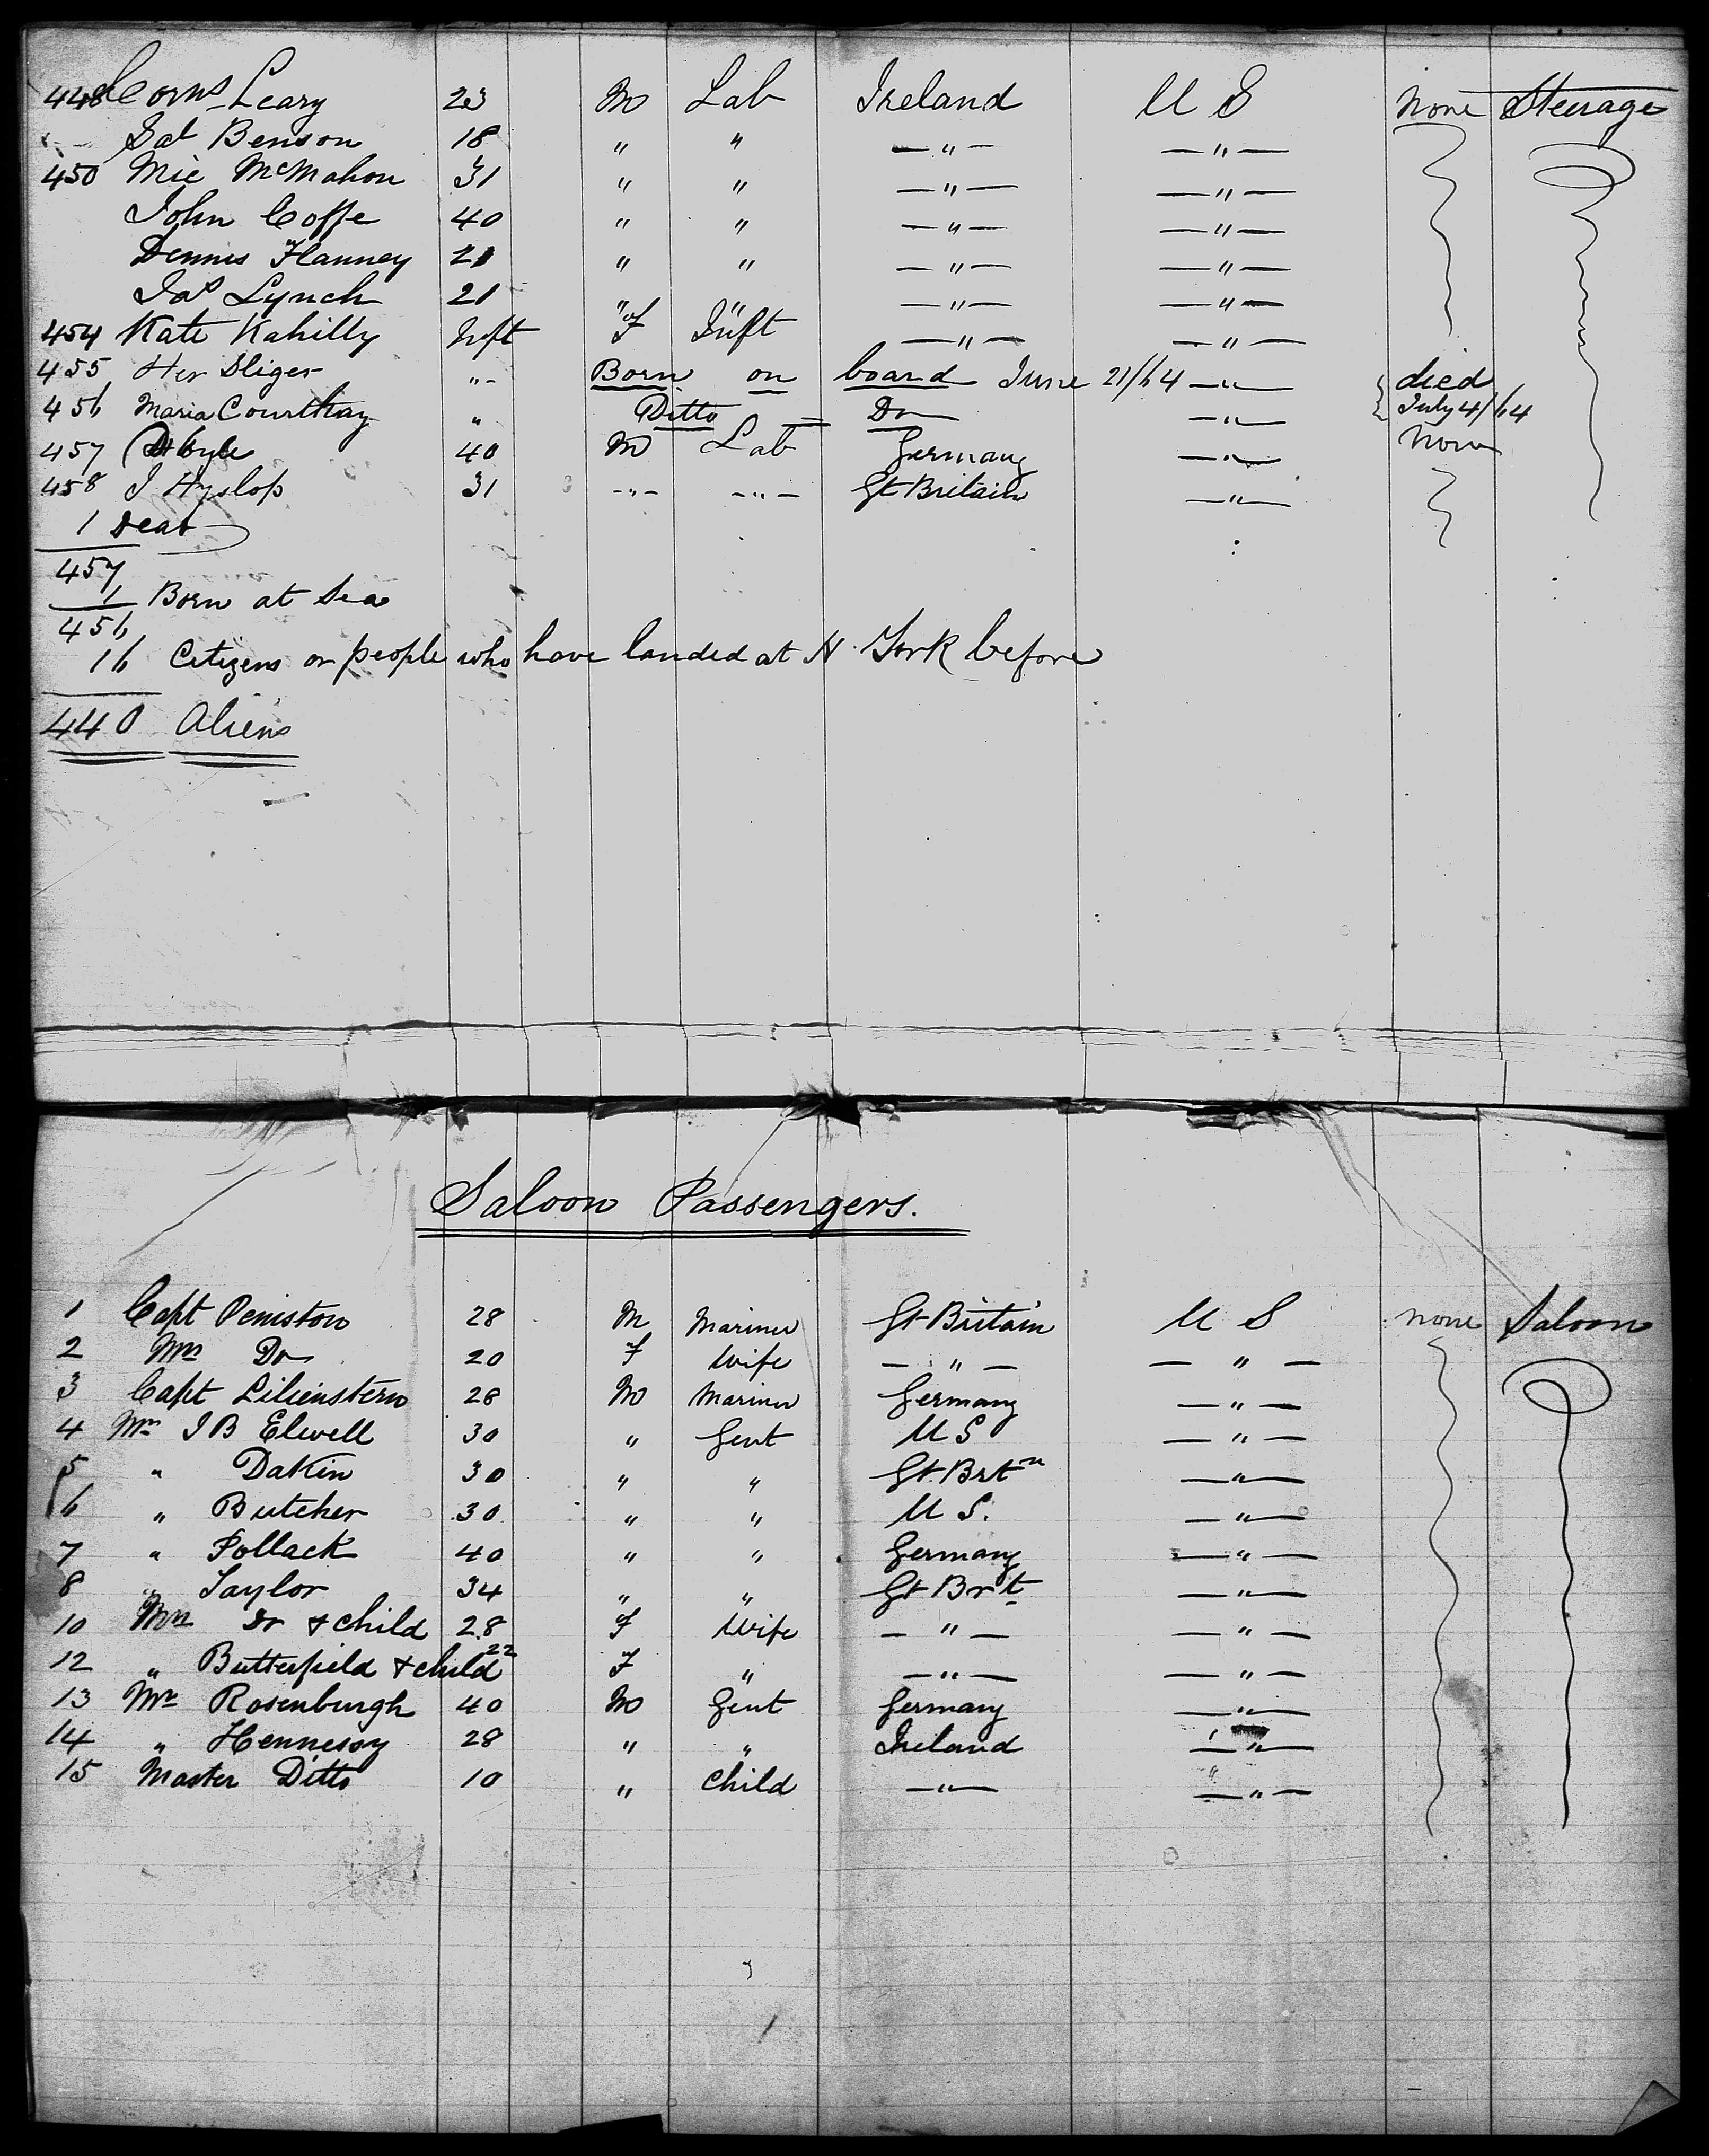 448 Corns Leary 23 M Lab Ireland U S None Steerage
Pat Benson 18 " " — " — — " —
450 Mic McMahon 31 " " — " — — " —
John Coffe 40 " " — " — — " —
Dennis Flanney 21 " " — " — — " —
Jas Lynch 21 " " — " — — " —
454 Kate Kahilly Inft F Inft — " — — " —
455 " - Born on board June 21/64 — " — died
456 Maria Courtnay " Ditto = Do — " — July 4/64
457 40 M Lab Germany — " — None
458 J Hyslop 31 - " - - " - Gt Britain — " —
1 Dead
457
1 Born at Sea
456
16 Citizens or people who have landed at N. York before
440 Aliens
Saloon Passengers.
1 Capt Peniston 28 M Mariner Gt Britain U S None Saloon
2 Mrs Do 20 F Wife — " — — " —
3 Capt Lilienstern 28 M Mariner Germany — " —
4 Mr J B Elwell 30 " Gent U S — " —
5 " Dakin 30 " " Gt. Brtn — " —
6 " Butcher 30 " " U S. — " —
7 " Pollack 40 " " Germany — " —
8 " Taylor 34 " " Gt Brt — " —
10 Mrs Do & child 28 F Wife — " — — " —
12 " Butterfield & child 22 F " — " — — " —
13 Mr Rosenburgh 40 M Gent Germany — " —
14 " Hennessy 28 " " Ireland — " —
15 Master Ditto 10 " child — " — — " —